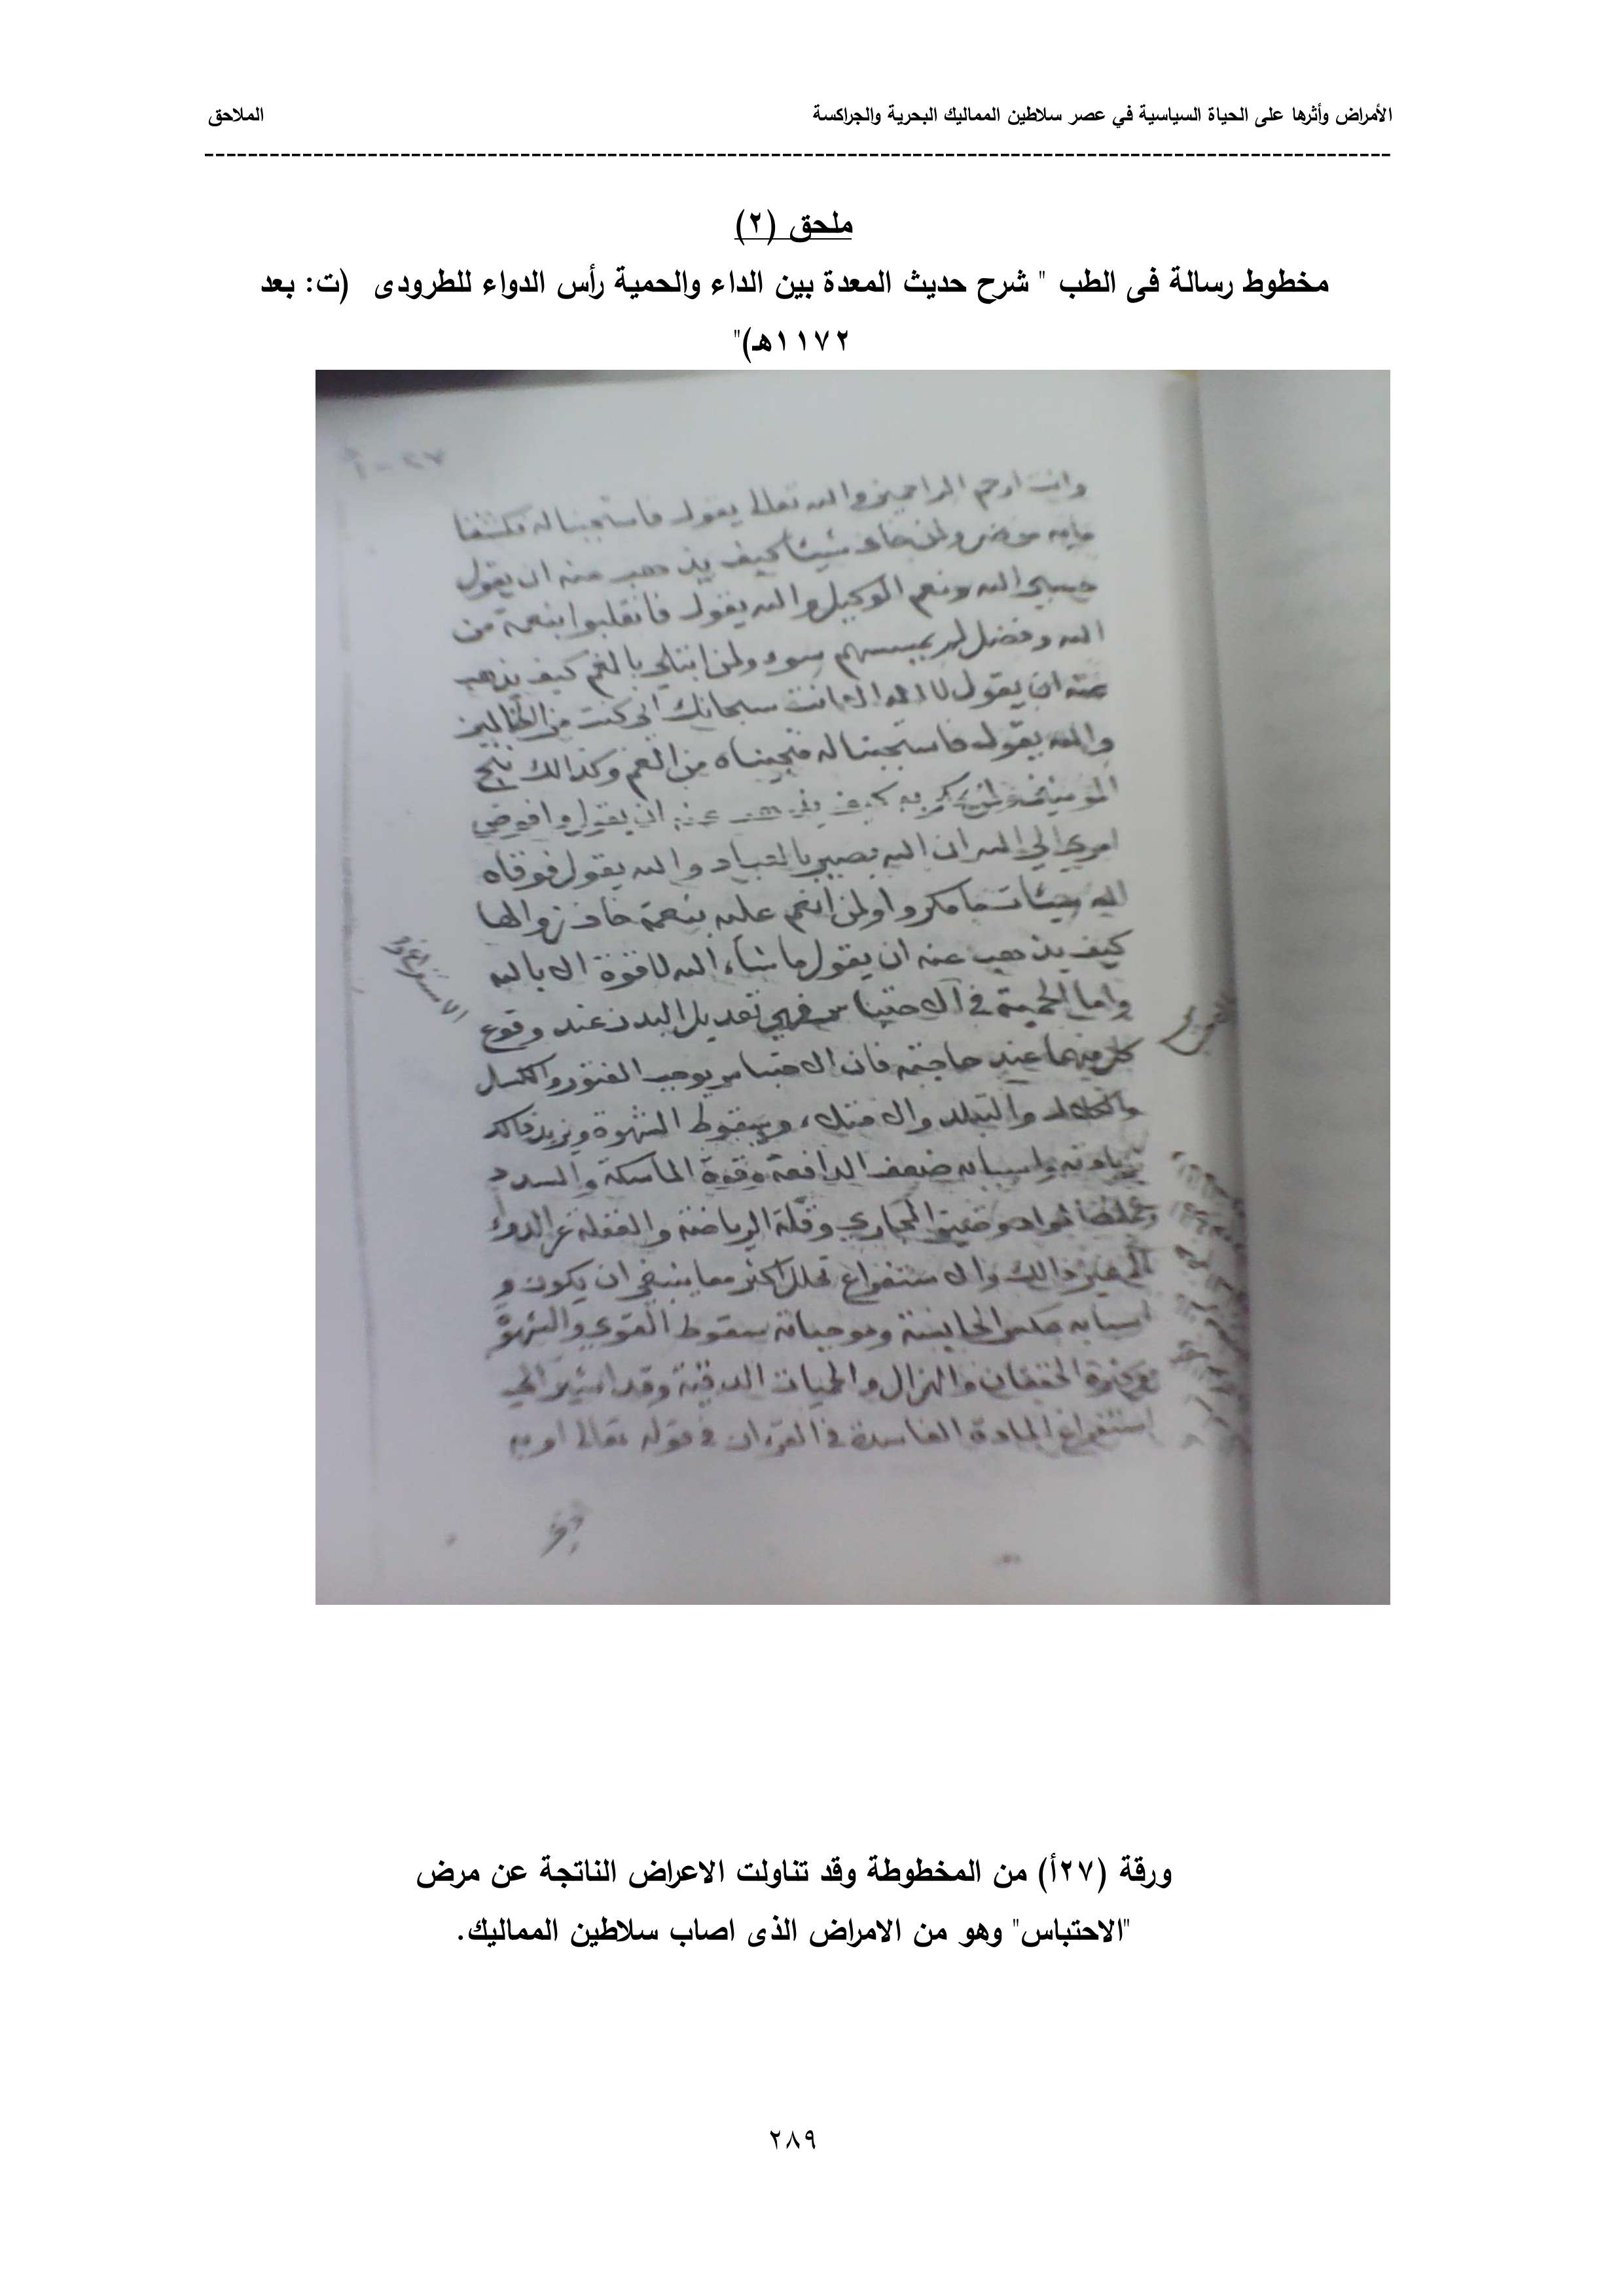 الأمراض وأثرها على الحياة السياسية في عصر سلاطين المماليك البحرية والجراكسة
الملاحق
ملحق (٢)
مخطوط رسالة فى الطب " شرح حديث المعدة بين الداء والحمية رأس الدواء للطرودى (ت: بعد
١١٧٢هـ)"
٢٧-أ
وانت ارحم الراحمين والله تعالى يقول فاستجبنا له فكشفنا
مابه من ضر ولمن خاف شيئا كيف يذهب عنه ان يقول
حسبي الله ونعم الوكيل والله يقول فانقلبوا بنعمة من
الله وفضل لم يمسسهم سوء ولمن ابتلي بالغم كيف يذهب
عنه ان يقول لا اله الا انت سبحانك اني كنت من الظالمين
والله يقول فاستجبنا له فنجيناه من الغم وكذالك ننج
المومنين كيف عنه ان يقول وافوض
امري الي الله ان الله بصير بالعباد والله يقول فوقاه
الله سيئات ما مكروا ولمن انعم عليه بنعمة خاف زوالها
كيف يذهب عنه ان يقول ما شاء الله لا قوة الا بالله
واما الحمية في الاحتباس فهي تعديل البدن عند وقوع
كل منهما عند حاجته فان الاحتباس يوجب الفتور والكسل
والتبلد وسقوط الشهوة
ضعف الدافعة وقوة الماسكة والسدد
وضيق المجاري وقلة الرياضة والغفلة عن الدواء
الي غير ذالك والاستفراغ تحلل اكثر مما ينبغي ان يكون و
اسبابه عكس وموجباته سقوط القوي والشهوة
وكثرة الخفقان والهزال والحميات الدقية وقد اشير الي
استفراغ المادة الفاسدة في القرءان في قوله تعالى او به
ورقة (٢٧أ) من المخطوطة وقد تناولت الاعراض الناتجة عن مرض
"الاحتباس" وهو من الامراض الذى اصاب سلاطين المماليك.
٢٨٩